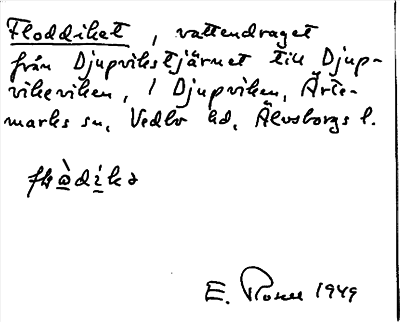 Floddiket, vattendraget
från Djupvikstjärnet till Djup-
vikeviken, / Djupviken, Ärte-
marks sn, Vedbo hd, Älvsborgs l.
E. Rosell 1949